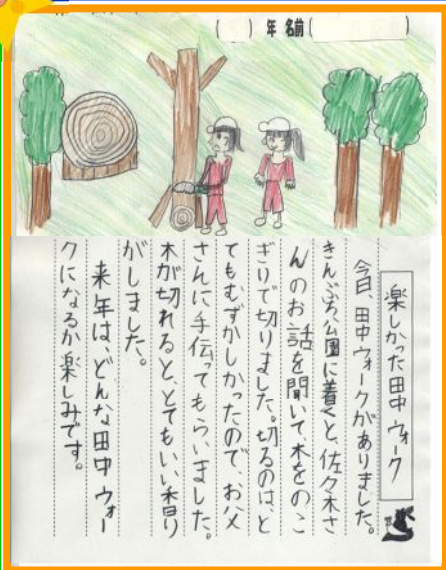 年 名前
楽しかった田中ウォーク
今日、田中ウォークがありました。
きんぶち公園に着くと、佐々木さ
んのお話を聞いて、木をのこ
ぎりで切りました。切るのは、と
てもむずかしかったので、お父
さんに手伝ってもらいました。
木が切れると、とてもいい香り
がしました。
来年は、どんな田中ウォー
クになるか楽しみです。